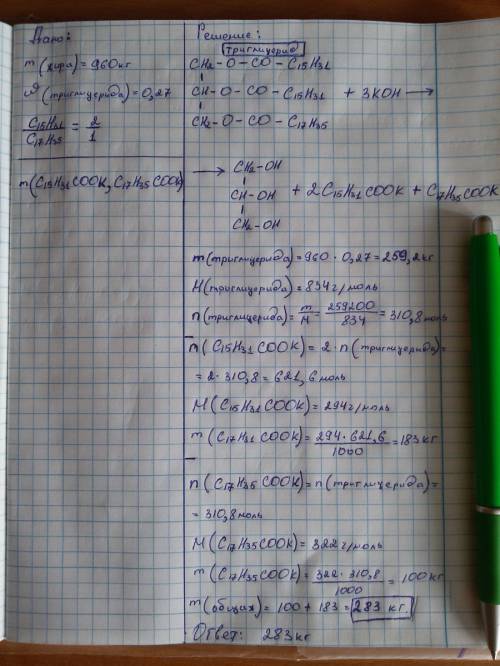 Дано:
m(жира) = 960 кг
ω(триглицерида) = 0,27
C15H31 / C17H35 = 2/1
m(C15H31COOK, C17H35COOK)
Решение:
триглицерид
CH2 - O - CO - C15H31
CH - O - CO - C15H31 + 3KOH →
CH2 - O - CO - C17H35
→ CH2 - OH
CH - OH + 2C15H31COOK + C17H35COOK
CH2 - OH
m(триглицерида) = 960 · 0,27 = 259,2 кг
M(триглицерида) = 834 г/моль
n(триглицерида) = m/M = 259200/834 = 310,8 моль
n(C15H31COOK) = 2 · n(триглицерида) =
= 2 · 310,8 = 621,6 моль
M(C15H31COOK) = 294 г/моль
m(C17H31COOK) = 294 · 621,6 / 1000 = 183 кг
n(C17H35COOK) = n(триглицерида) =
= 310,8 моль
M(C17H35COOK) = 322 г/моль
m(C17H35COOK) = 322 · 310,8 / 1000 = 100 кг
m(общая) = 100 + 183 = 283 кг.
Ответ: 283 кг